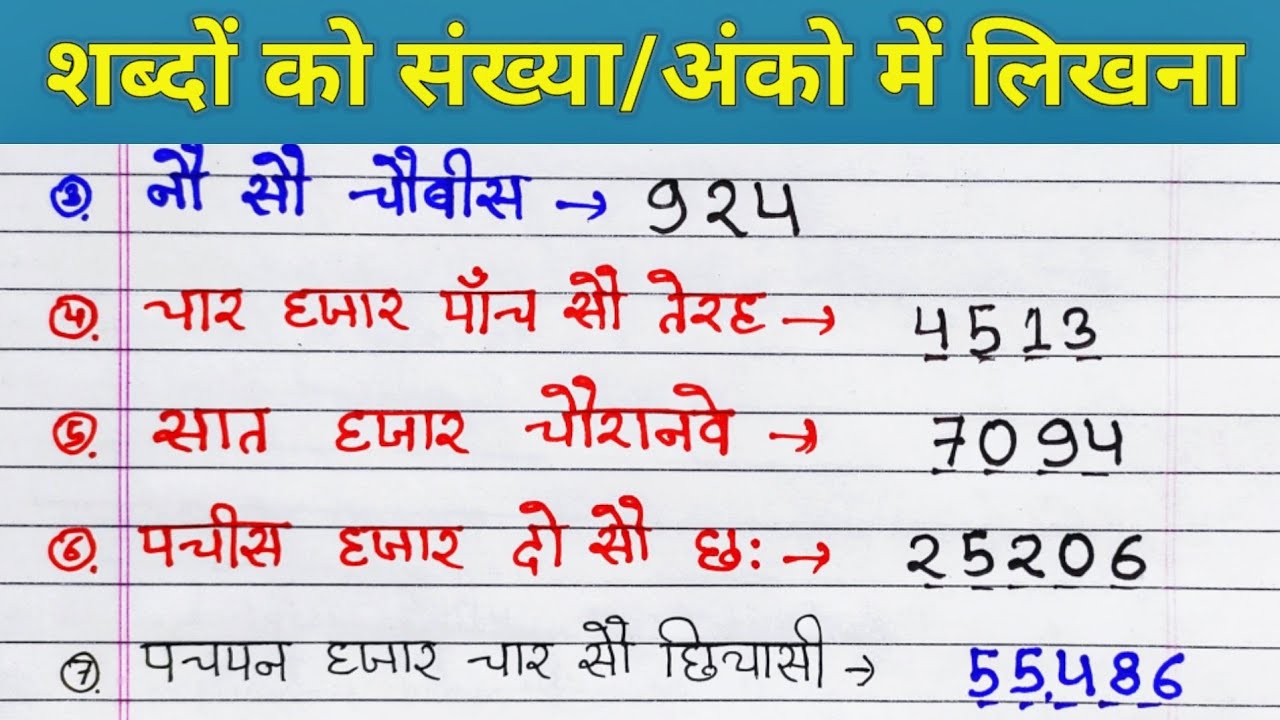 शब्दों को संख्या/अंको में लिखना
3. नौ सौ चौबीस → 924
4. चार हजार पाँच सौ तेरह → 4513
5. सात हजार चौरानवे → 7094
6. पचीस हजार दो सौ छः → 25206
7. पचपन हजार चार सौ छियासी → 55,486